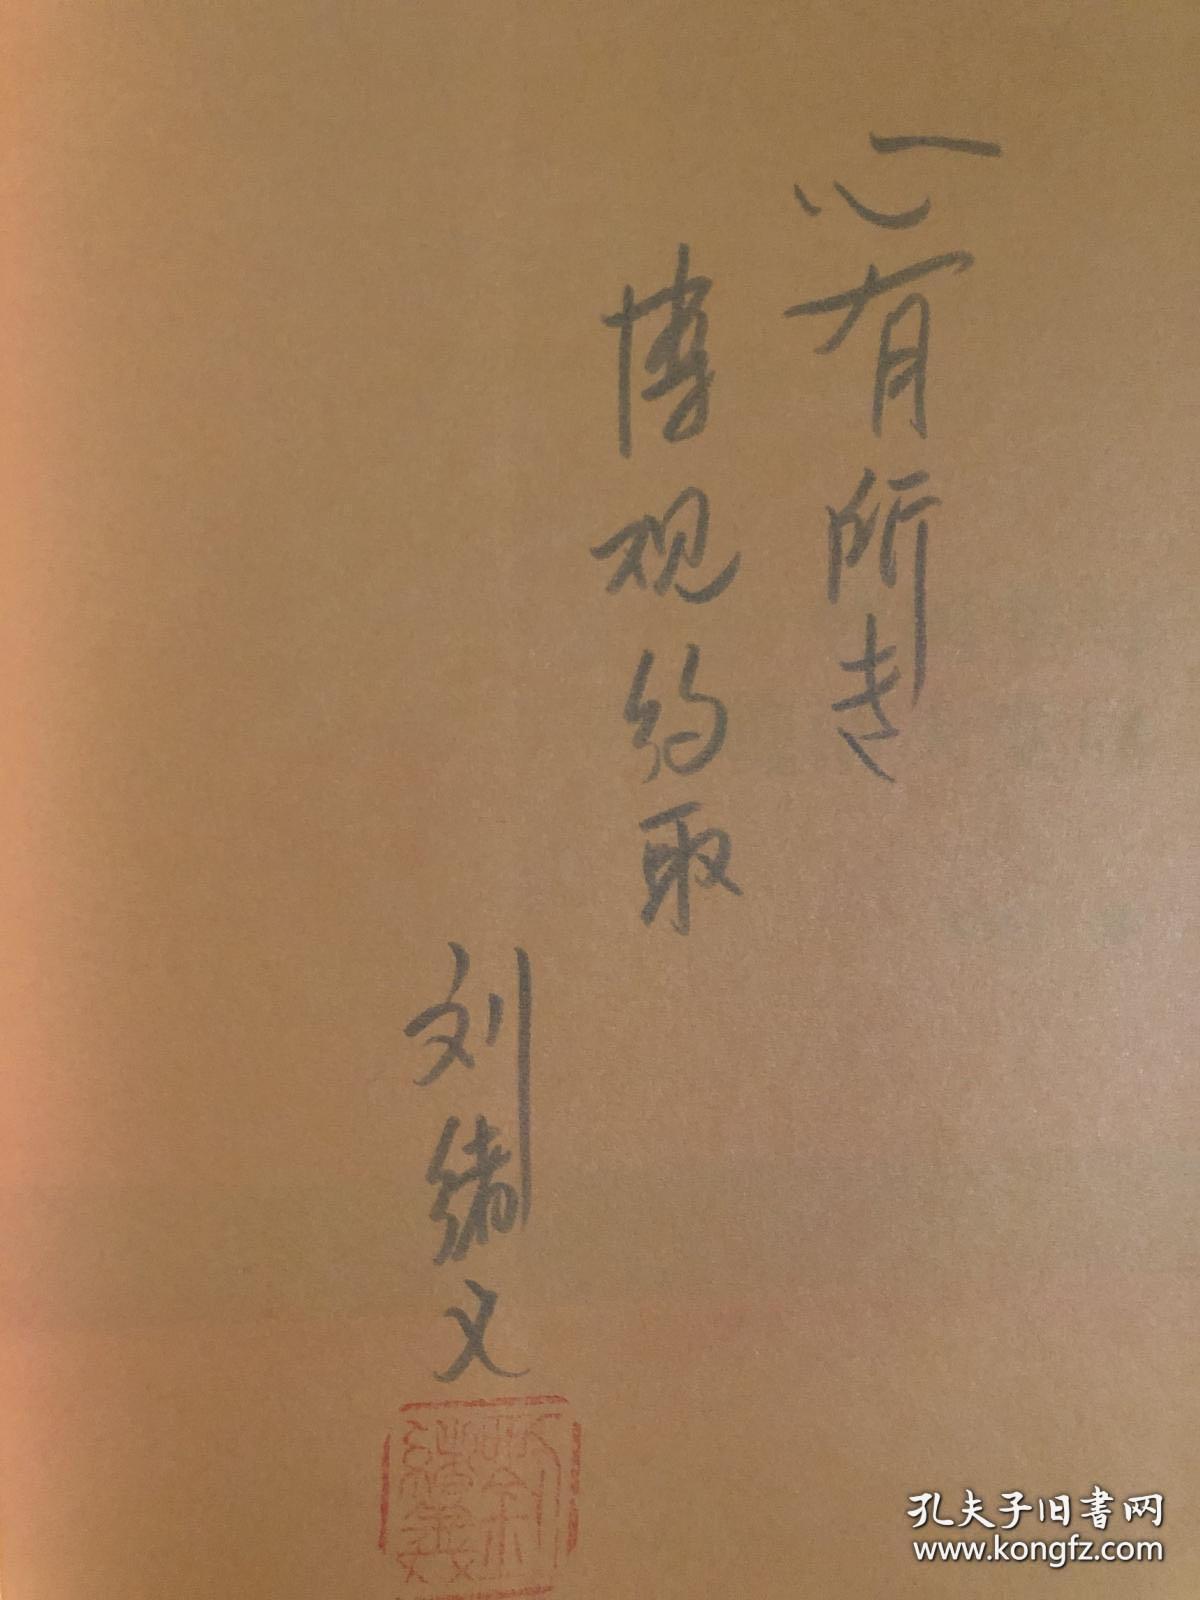 心有所专
博观约取
刘绪义
劉緒義
孔夫子旧书网
www.kongfz.com